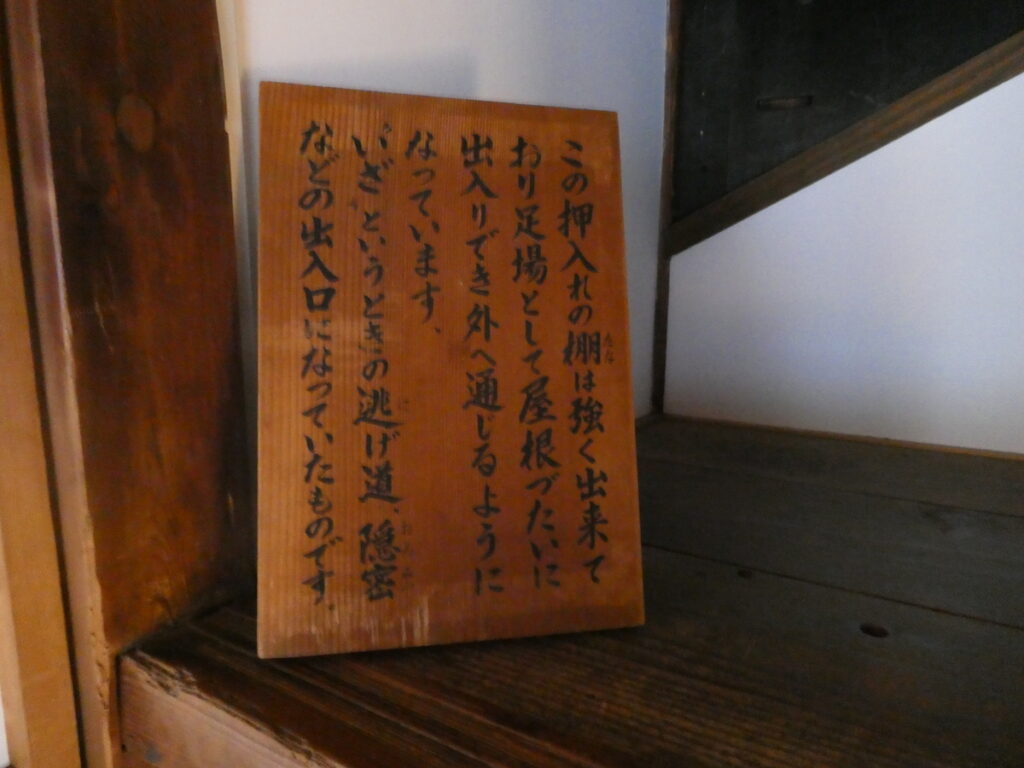 この押入れの棚は強く出来て
おり足場として屋根づたいに
出入りでき外へ通じるように
なっています、
いざというときの逃げ道、隠密
などの出入口になっていたものです、
たな